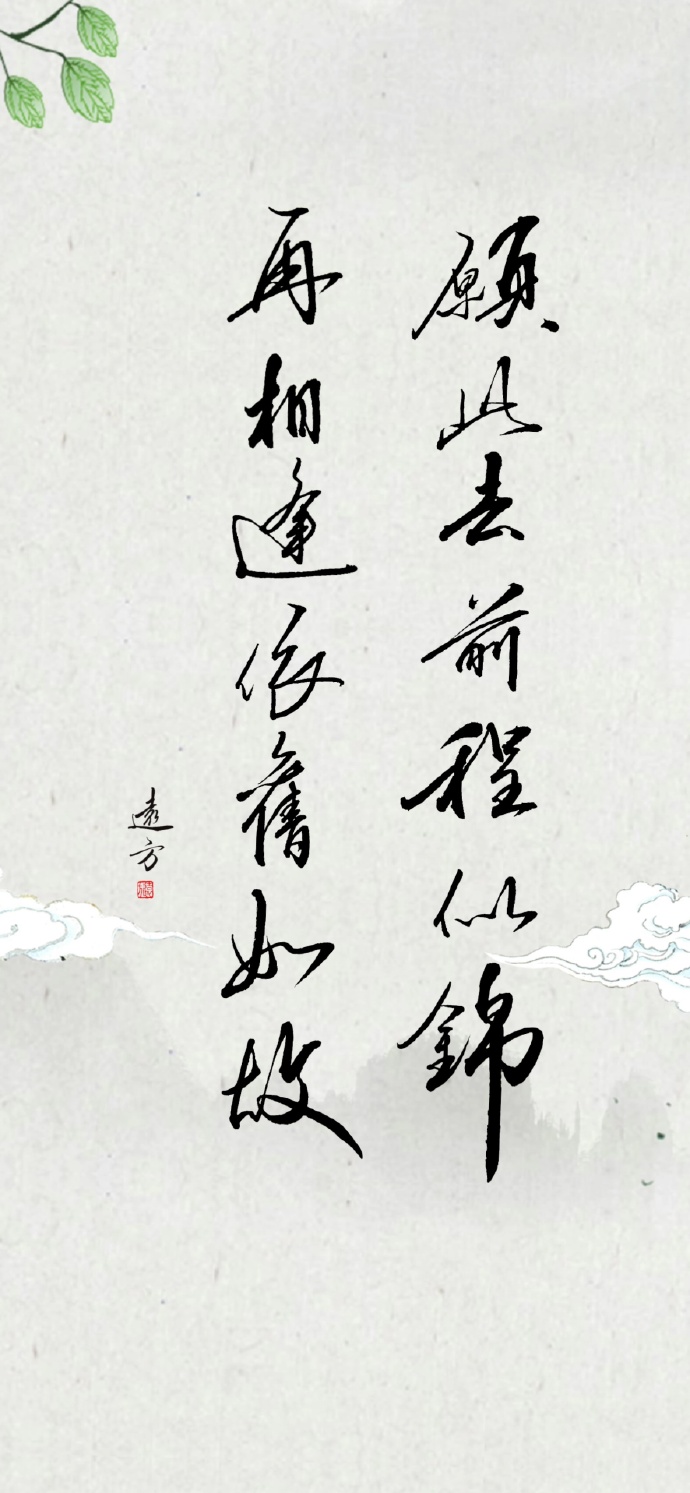 願此去前程似錦
再相逢依舊如故
遠方